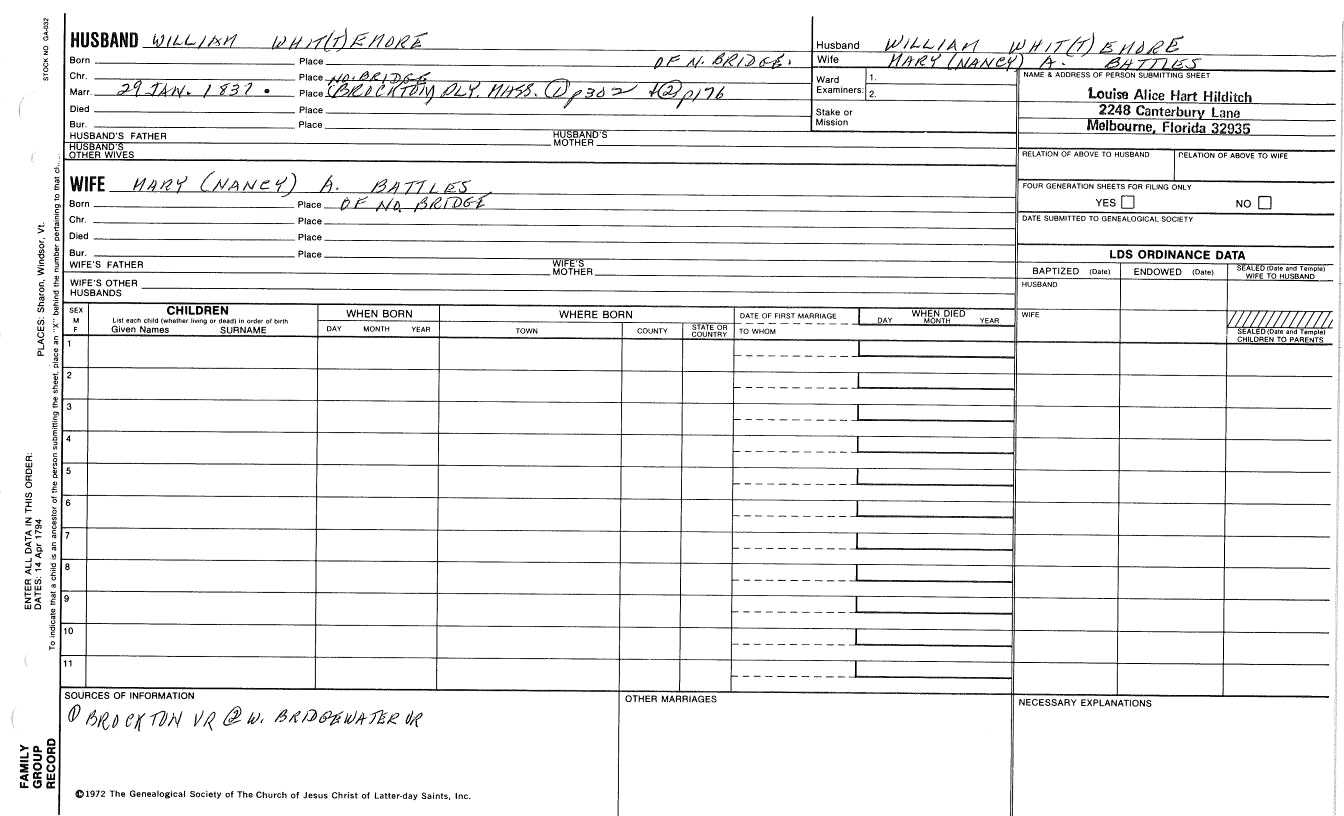 STOCK NO. GA-032
HUSBAND WILLIAM WHIT(T)EMORE
Born Place OF N. BRIDGE.
Chr. Place NO. BRIDGE
Marr. 29 JAN. 1837. Place (BROCKTON) PLY. MASS. ① p302 + ② p176
Died Place
Bur. Place
HUSBAND'S FATHER HUSBAND'S MOTHER
HUSBAND'S OTHER WIVES
Husband WILLIAM WHIT(T)EMORE
Wife MARY (NANCY) A. BATTLES
Ward Examiners: 1. 2.
Stake or Mission
NAME & ADDRESS OF PERSON SUBMITTING SHEET
Louise Alice Hart Hilditch
2248 Canterbury Lane
Melbourne, Florida 32935
RELATION OF ABOVE TO HUSBAND RELATION OF ABOVE TO WIFE
FOUR GENERATION SHEETS FOR FILING ONLY
YES NO
DATE SUBMITTED TO GENEALOGICAL SOCIETY
WIFE MARY (NANCY) A. BATTLES
Born Place OF NO. BRIDGE
Chr. Place
Died Place
Bur. Place
WIFE'S FATHER WIFE'S MOTHER
WIFE'S OTHER HUSBANDS
LDS ORDINANCE DATA
BAPTIZED (Date) ENDOWED (Date) SEALED (Date and Temple) WIFE TO HUSBAND
HUSBAND
WIFE
SEALED (Date and Temple) CHILDREN TO PARENTS
SEX M F
CHILDREN
List each child (whether living or dead) in order of birth
Given Names SURNAME
WHEN BORN
DAY MONTH YEAR
WHERE BORN
TOWN COUNTY STATE OR COUNTRY
DATE OF FIRST MARRIAGE
TO WHOM
WHEN DIED
DAY MONTH YEAR
1
2
3
4
5
6
7
8
9
10
11
SOURCES OF INFORMATION
① BROCKTON VR ② W. BRIDGEWATER VR
OTHER MARRIAGES
NECESSARY EXPLANATIONS
©1972 The Genealogical Society of The Church of Jesus Christ of Latter-day Saints, Inc.
FAMILY
GROUP
RECORD
ENTER ALL DATA IN THIS ORDER:
DATES: 14 Apr 1794 PLACES: Sharon, Windsor, Vt.
To indicate that a child is an ancestor of the person submitting the sheet, place an "X" behind the number pertaining to that